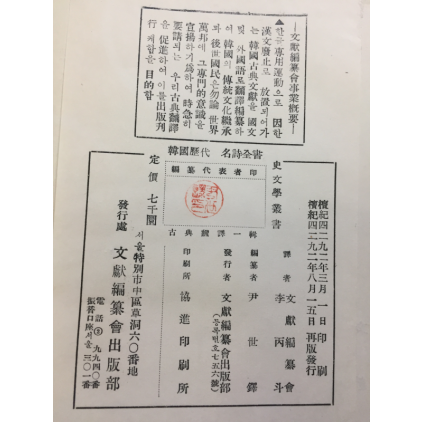 —文獻編纂會事業概要—
▲한글專用運動으로 因한
漢文廢止로 放置되어가
는 韓國古典文獻을 國文
및 外國語로 翻譯編纂하
여 韓國의 傳統文化繼承
과 後世國民은 勿論 世界
萬邦에 그 專門的意識을
宣揚하기爲하여 時急히
要請되는 우리古典翻譯
을 促進하여 이를出版刊
行케함을 目的함
韓國歷代 名詩全書
檀紀四二九二年三月一日 印刷
檀紀四二九二年八月一五日 再版發行
史文學叢書
編纂代表者印
古典飜譯一輯
譯者 文獻編纂會
李丙斗
編纂者 尹世鐸
發行者 文獻編纂會出版部
(등록번호七五六號)
印刷所 協進印刷所
定價 七千圜
서울特別市中區草洞六〇番地
發行處 文獻編纂會出版部
電話③九九四〇番
振替口座서울三〇一番